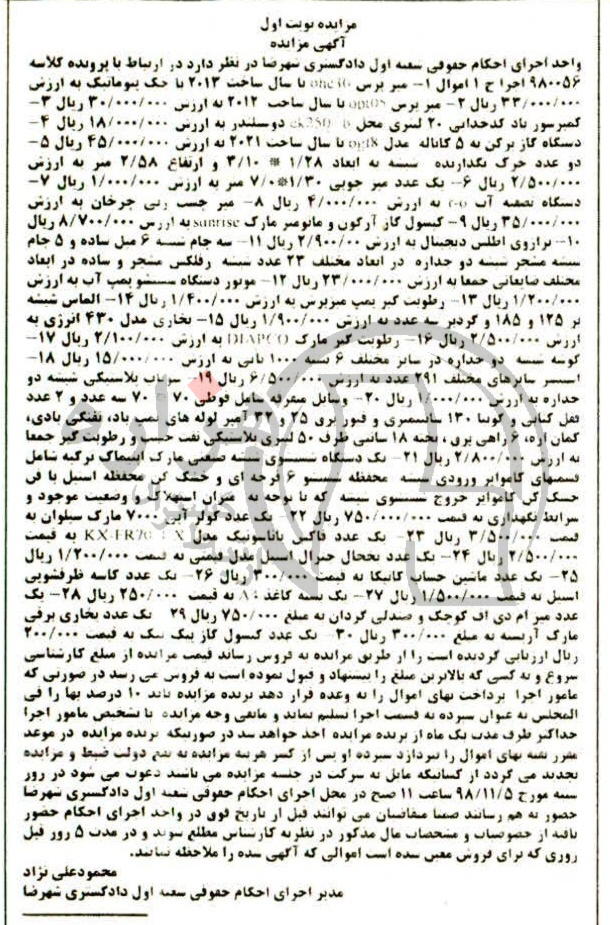 مزایده نوبت اول
آگهی مزایده
واحد اجرای احکام حقوقی شعبه اول دادگستری شهرضا در نظر دارد در ارتباط با پرونده کلاسه
۹۸۰۰۵۶ اجرا ح ۱ اموال ۱- میز پرس با سال ساخت ۲۰۱۳ با جک پنوماتیک به ارزش
۳۳/۰۰۰/۰۰۰ ریال ۲- میز پرس با سال ساخت ۲۰۱۲ به ارزش ۳۰/۰۰۰/۰۰۰ ریال ۳-
کمپرسور باد کدخدایی ۲۰ لیتری مخل دوسلندر به ارزش ۱۸/۰۰۰/۰۰۰ ریال ۴-
دستگاه گاز پرکن به ۵ کاناله مدل با سال ساخت ۲۰۲۱ به ارزش ۴۵/۰۰۰/۰۰۰ ریال ۵-
دو عدد خرک نگهدارنده شیشه به ابعاد ۱/۲۸ * ۳/۱۰ و ارتفاع ۲/۵۸ متر به ارزش
۲/۵۰۰/۰۰۰ ریال ۶- یک عدد میز چوبی ۱/۳۰*۷/۰ متر به ارزش ۱/۰۰۰/۰۰۰ ریال ۷-
دستگاه تصفیه آب به ارزش ۴/۰۰۰/۰۰۰ ریال ۸- میز چسب زنی چرخان به ارزش
۳۵/۰۰۰/۰۰۰ ریال ۹- کپسول گاز آرگون و مانومتر مارک sunrise به ارزش ۸/۷۰۰/۰۰۰ ریال
۱۰- ترازوی اطلس دیجیتال به ارزش ۲/۹۰۰/۰۰ ریال ۱۱- سه جام شیشه ۶ میل ساده و ۵ جام
شیشه مشجر شیشه دو جداره در ابعاد مختلف ۲۳ عدد شیشه رفلکس مشجر و ساده در ابعاد
مختلف ضایعاتی جمعا به ارزش ۲۳/۰۰۰/۰۰۰ ریال ۱۲- موتور دستگاه شستشو پمپ آب به ارزش
۱/۲۰۰/۰۰۰ ریال ۱۳- رطوبت گیر پمپ میزپرش به ارزش ۱/۴۰۰/۰۰۰ ریال ۱۴- الماس شیشه
بر ۱۲۵ و ۱۸۵ و گردبر سه عدد به ارزش ۱/۹۰۰/۰۰۰ ریال ۱۵- بخاری مدل ۴۳۰ انرژی به
ارزش ۲/۵۰۰/۰۰۰ ریال ۱۶- رطوبت گیر مارک DIAPCO به ارزش ۲/۱۰۰/۰۰۰ ریال ۱۷-
گوشه شیشه دو جداره در سایز مختلف ۶ بسته ۱۰۰۰ تایی به ارزش ۱۵/۰۰۰/۰۰۰ ریال ۱۸-
اسپیسر سایزهای مختلف ۲۹۱ عدد به ارزش ۶/۵۰۰/۰۰۰ ریال ۱۹- پلاستیکی شیشه دو
جداره به ارزش ۱/۰۰۰/۰۰۰ ریال ۲۰- وسایل متفرقه شامل قوطی ۷۰ ۷۰ سه عدد و ۲ عدد
قفل کتابی و گونیا ۱۳۰ سانتیمتری و فیوز برق ۲۵ و ۳۲ آمپر لوله های پمپ باد، تفنگی بادی،
کمان اره، ۶ راهی برق ، تخته ۱۸ سانتی ظرف ۵۰ لیتری پلاستیکی نفت چسب و رطوبت گیر جمعا
به ارزش ۲/۸۰۰/۰۰۰ ریال ۲۱- یک دستگاه شستشوی شیشه صنعتی مارک ترکیه شامل
قسمتهای کاموایر ورودی شیشه محفظه شستشو ۶ فرچه ای و خشک کن محفظه استیل با فن
خشک کن کاموایر خروج شستشوی شیشه که با توجه به میزان استهلاک و وضعیت موجود و
شرایط نگهداری به قیمت ۷۵۰/۰۰۰/۰۰۰ ریال ۲۲- یک عدد کولر آبی ۷۰۰۰ مارک سیلوان به
قیمت ۳/۵۰۰/۰۰۰ ریال ۲۳- یک عدد فاکس پاناسونیک مدل به قیمت
۲/۵۰۰/۰۰۰ ریال ۲۴- یک عدد یخچال جنرال استیل مدل قدیمی به قیمت ۱/۲۰۰/۰۰۰ ریال
۲۵- یک عدد ماشین حساب کاتیکا به قیمت ۳۰۰/۰۰۰ ریال ۲۶- یک عدد کاسه ظرفشویی
استیل به قیمت ۱/۵۰۰/۰۰۰ ریال ۲۷- یک بسته کاغذ A۴ به قیمت ۲۵۰/۰۰۰ ریال ۲۸- یک
عدد میز ام دی اف کوچک و صندلی گردان به مبلغ ۷۵۰/۰۰۰ ریال ۲۹- یک عدد بخاری برقی
مارک آریسته به مبلغ ۳۰۰/۰۰۰ ریال ۳۰- یک عدد کپسول گاز پیک نیک به قیمت ۲۰۰/۰۰۰
ریال ارزیابی گردیده است را از طریق مزایده به فروش رساند قیمت مزایده از مبلغ کارشناسی
شروع و به کسی که بالاترین مبلغ را پیشنهاد و قبول نموده است به فروش می رسد در صورتی که
مامور اجرا پرداخت بهای اموال را به وعده قرار دهد برنده مزایده باید ۱۰ درصد بها را فی
المجلس به عنوان سپرده به قسمت اجرا تسلیم نماید و مابقی وجه مزایده با تشخیص مامور اجرا
حداکثر ظرف مدت یک ماه از برنده مزایده اخذ خواهد شد در صورتیکه برنده مزایده در موعد
مقرر بقیه بهای اموال را نپردازد سپرده او پس از کسر هزینه مزایده به نفع دولت ضبط و مزایده
تجدید می گردد از کسانیکه مایل به شرکت در جلسه مزایده می باشند دعوت می شود در روز
شنبه مورخ ۹۸/۱۱/۵ ساعت ۱۱ صبح در محل اجرای احکام حقوقی شعبه اول دادگستری شهرضا
حضور به هم رسانند ضمنا متقاضیان می توانند قبل از تاریخ فوق در واحد اجرای احکام حضور
یافته از خصوصیات و مشخصات مال مذکور در نظریه کارشناس مطلع شوند و در مدت ۵ روز قبل
روزی که برای فروش معین شده است اموالی که آگهی شده را ملاحظه نمایند.
محمودعلی نژاد
مدیر اجرای احکام حقوقی شعبه اول دادگستری شهرضا